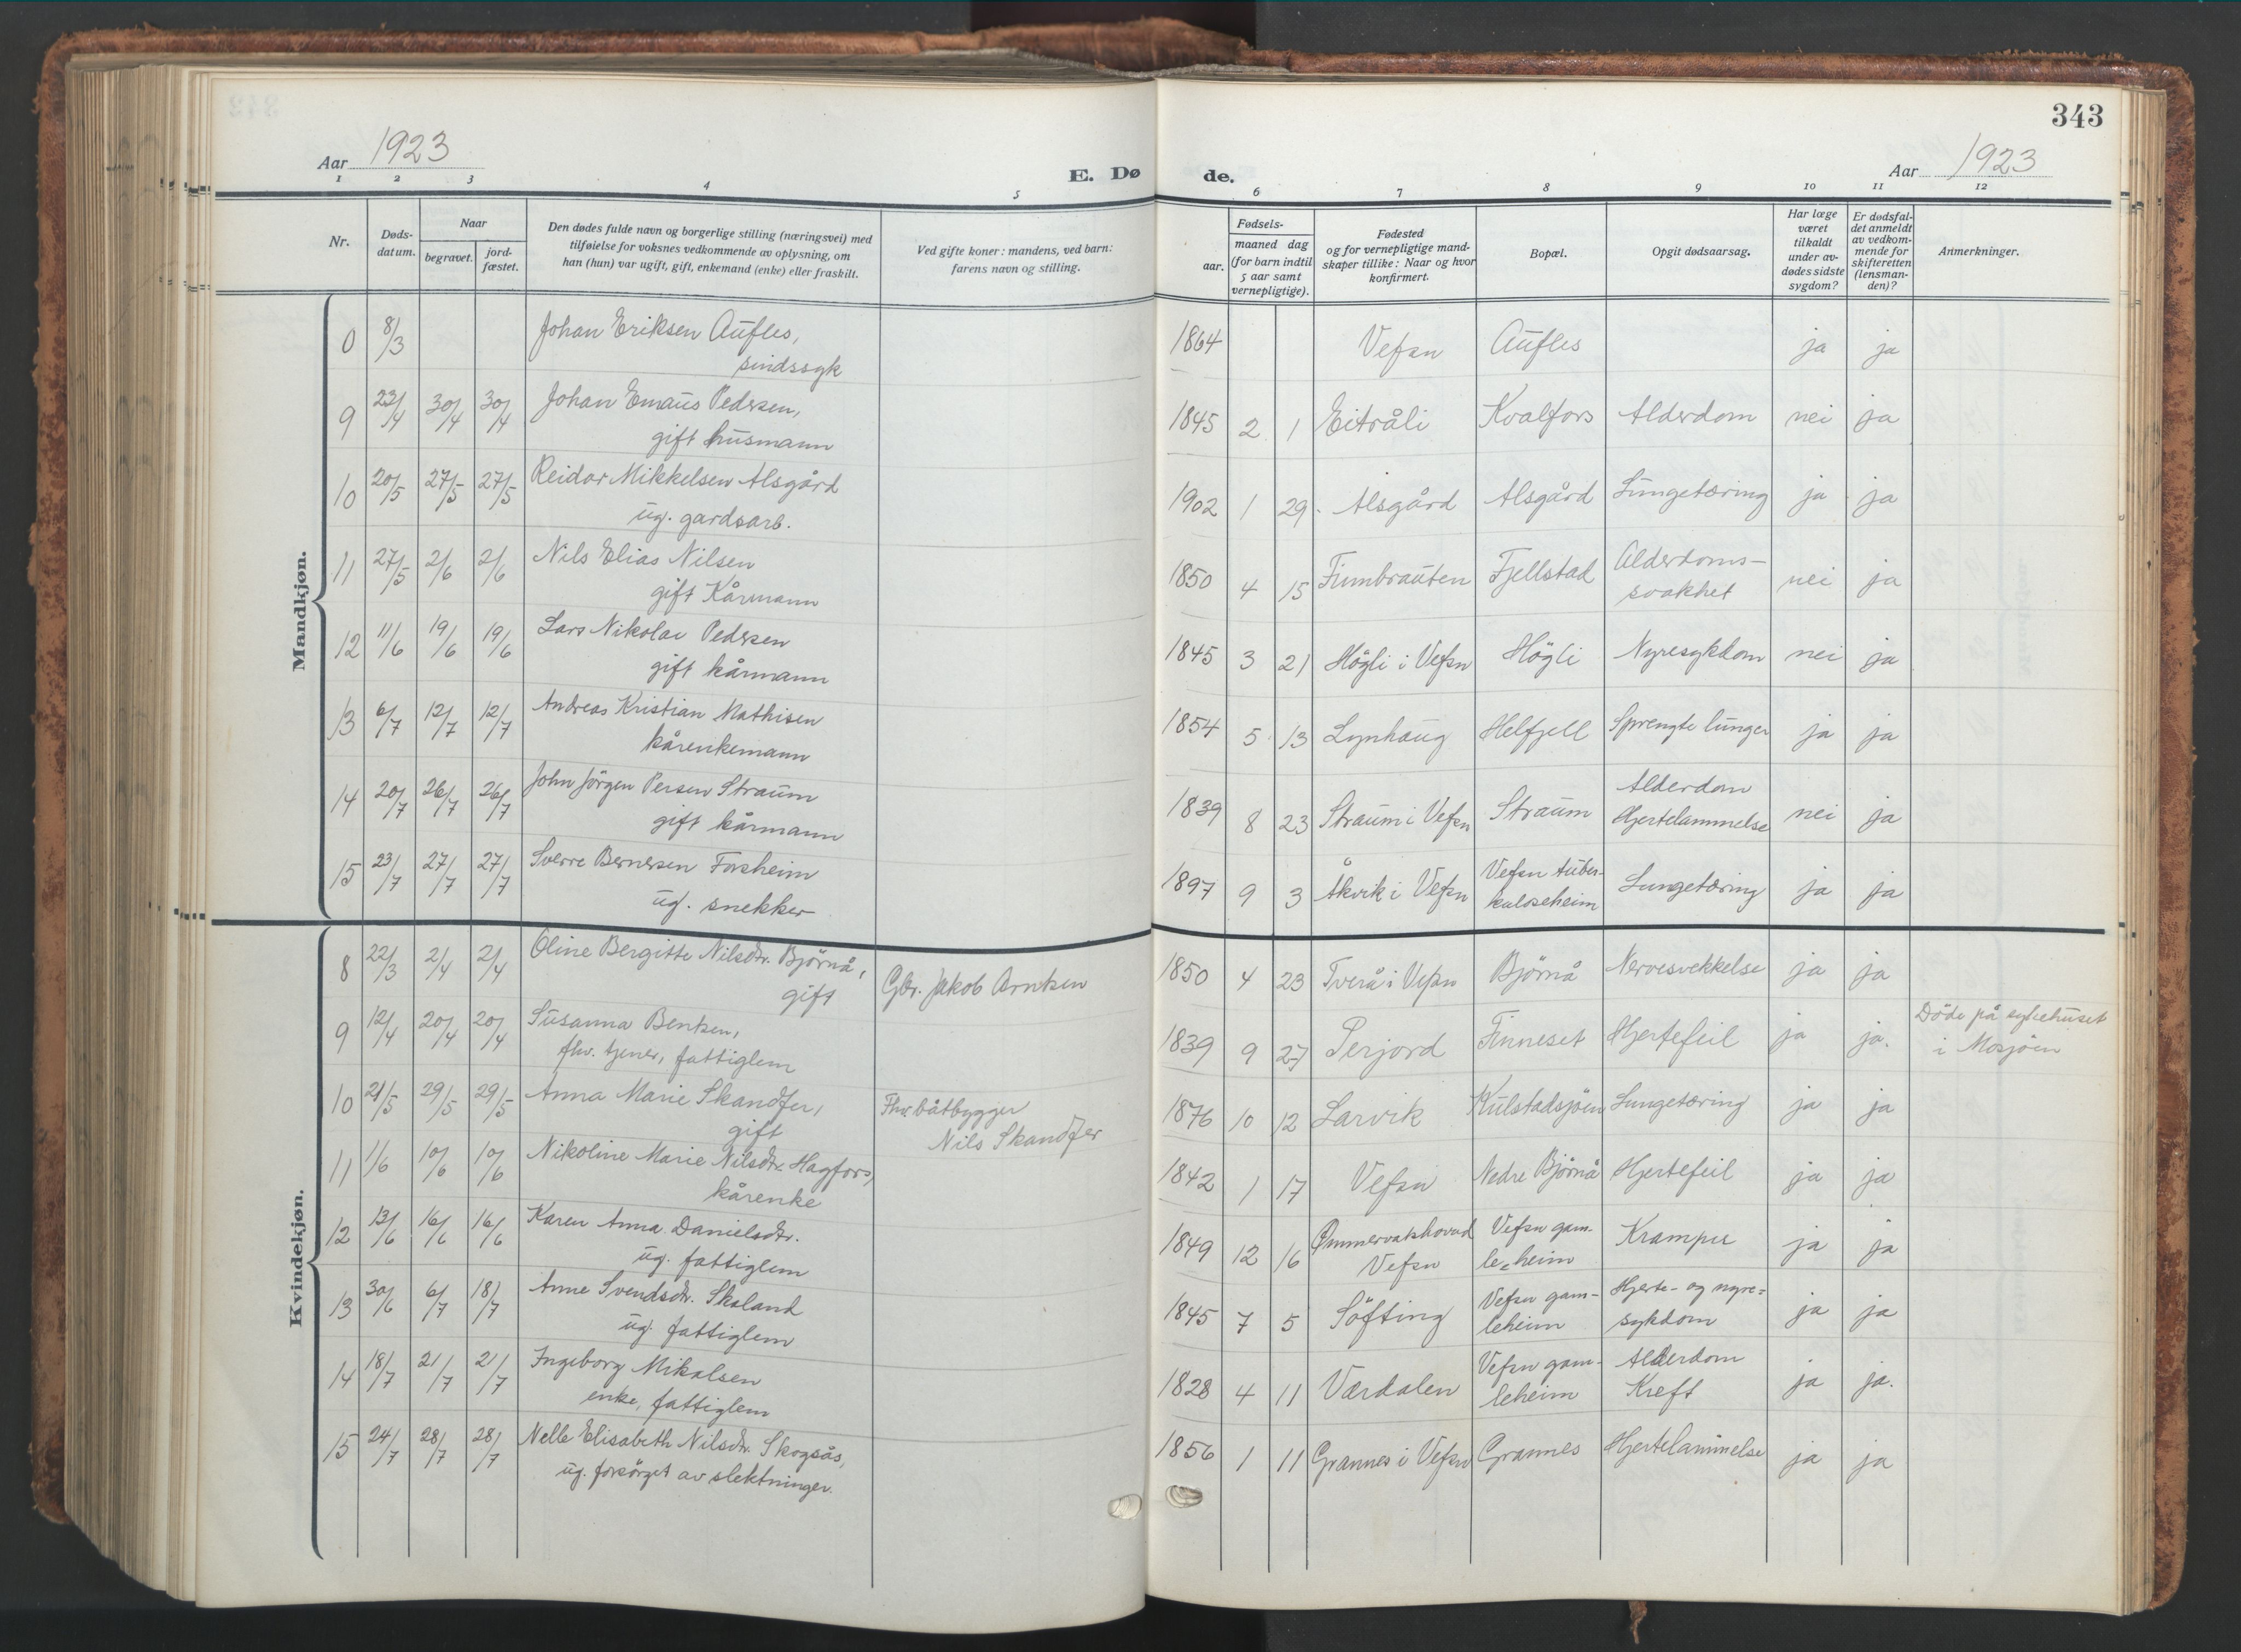 343
Aar 1923
E. Dø
de.
Aar 1923
1 2 3 4 5 6 7 8 9 10 11 12
Nr.
Døds-
datum.
Naar
begravet.
jord-
fæstet.
Den dødes fulde navn og borgerlige stilling (næringsvei) med
tilføielse for voksnes vedkommende av oplysning, om
han (hun) var ugift, gift, enkemand (enke) eller fraskilt.
Ved gifte koner: mandens, ved barn:
farens navn og stilling.
Fødsels-
aar.
maaned dag
(for barn indtil
5 aar samt
vernepligtige).
Fødested
og for vernepligtige mand-
skaper tillike: Naar og hvor
konfirmert.
Bopæl.
Opgit dødsaarsag.
Har læge
været
tilkaldt
under av-
dødes sidste
sygdom?
Er dødsfal-
det anmeldt
av vedkom-
mende for
skifteretten
(lensman-
den)?
Anmerkninger.
Mandkjøn.
0 8/3 Johan Eriksen Aufles, 1864 Vefsn Aufles ja ja
sindssyk
9 23/4 30/4 30/4 Johan Emaus Pedersen, 1845 2 1 Eitråli Kvalfors Alderdom nei ja
gift husmann
10 20/5 27/5 27/5 Reidar Mikkelsen Alsgård 1902 1 29 Alsgård Alsgård Lungetæring ja ja
ug. gardsarb.
11 27/5 2/6 2/6 Nils Elias Nilsen 1850 4 15 Finnbrauten Fjellstad Alderdoms-
gift Kårmann svakhet nei ja
12 11/6 19/6 19/6 Lars Nikolai Pedersen 1845 3 21 Högli i Vefsn Högli Nyresykdom nei ja
gift kårmann
13 6/7 12/7 12/7 Andreas Kristian Mathisen 1854 5 13 Lynhaug Helfjell Sprengte lunger ja ja
kårenkemann
14 20/7 26/7 26/7 John Jörgen Persen Straum 1839 8 23 Straum i Vefsn Straum Alderdom
gift kårmann Hjertelammelse nei ja
15 23/7 27/7 27/7 Sverre Bernersen Forsheim 1897 9 3 Åkvik i Vefsn Vefsn tuber-
ug. snekker kuloseheim Lungetæring ja ja
Kvindekjøn.
8 22/3 2/4 2/4 Oline Bergitte Nilsdtr. Björnå, 1850 4 23 Tverå i Vefsn Björnå Nervesvekkelse ja ja
gift Gbr. Jakob Arntsen
9 12/4 20/4 20/4 Susanna Bentsen, 1839 9 27 Perjord Finneset Hjertefeil ja ja. Döde på sykehuset
fhv. tjener, fattiglem i Mosjöen
10 21/5 29/5 29/5 Anna Marie Skandfer, Fhv. båtbygger 1876 10 12 Larvik Kulstadsjöen Lungetæring ja ja
gift Nils Skandfer
11 1/6 10/6 10/6 Nikoline Marie Nilsdtr. Hagfors, 1842 1 17 Vefsn Nedre Björnå Hjertefeil ja ja
kårenke
12 13/6 16/6 16/6 Karen Anna Danielsdtr. 1849 12 16 Ømmervatshovud Vefsn gam-
ug. fattiglem Vefsn leheim Kramper ja ja
13 30/6 6/7 18/7 Anne Svendsdtr. Skoland 1845 7 5 Söfting Vefsn gam- Hjerte- og nyre-
ug. fattiglem leheim sykdom ja ja
14 18/7 21/7 21/7 Ingeborg Mikalsen 1828 4 11 Værdalen Vefsn gam- Alderdom
enke, fattiglem leheim Kreft ja ja.
15 24/7 28/7 28/7 Nelle Elisabeth Nilsdtr. Skogsås, 1856 1 11 Grannes i Vefsn Grannes Hjertelammelse ja ja
ug. forsörget av slektninger.